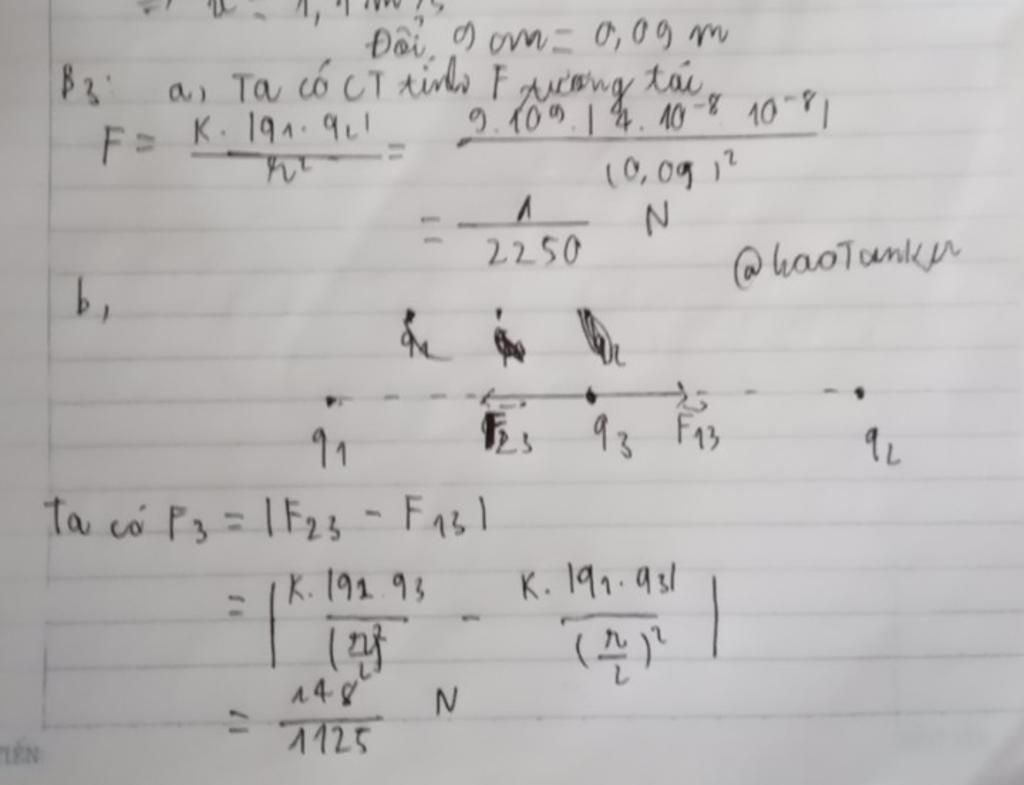 Đổi 9 cm = 0,09 m
B3: a, Ta có CT tính F tương tác
F = K.|q1.q2| / r² = 9.10⁹.|4.10⁻⁸ 10⁻⁸| / (0,09)²
= 1 / 2250 N
@haoTanku
b,
q1 F23 q3 F13 q2
Ta có F3 = |F23 - F13|
= | K.|q2.q3 / (r/2)² - K.|q1.q3| / (r/2)² |
= 148 / 1125 N
TIẾN